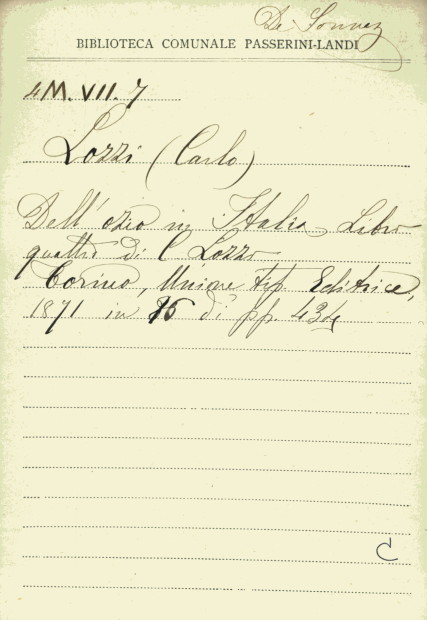 De Sonnez
BIBLIOTECA COMUNALE PASSERINI-LANDI
4M. VII. 7
Lozzi (Carlo)
Dell'ozio in Italia Libro
quattro di C Lozzo
Torino, Unione tip. Editrice,
1871 in 16 di pp. 434
C